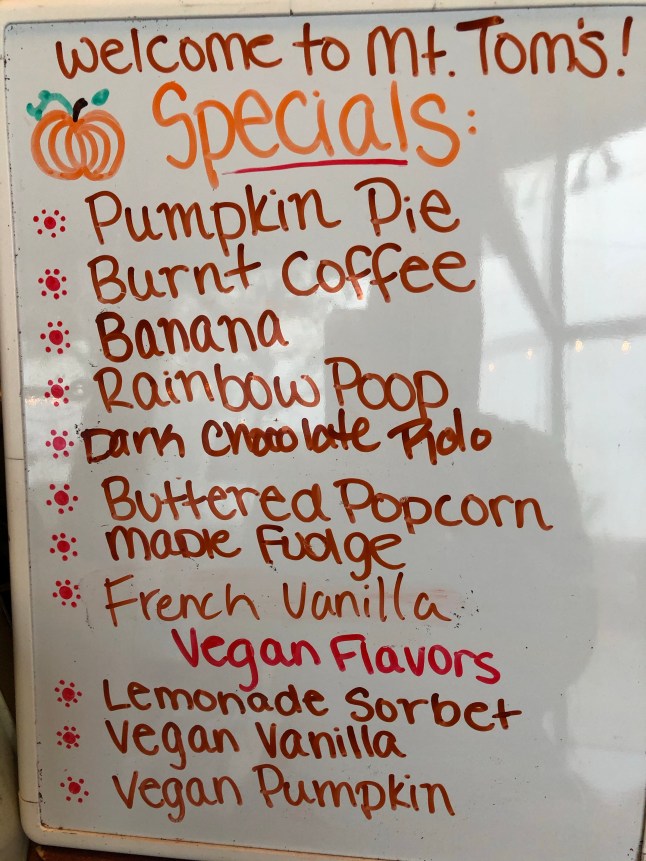 Welcome to Mt. Tom's!
Specials:
Pumpkin Pie
Burnt Coffee
Banana
Rainbow Poop
Dark Chocolate Rolo
Buttered Popcorn
Maple Fudge
French Vanilla
Vegan Flavors
Lemonade Sorbet
Vegan Vanilla
Vegan Pumpkin